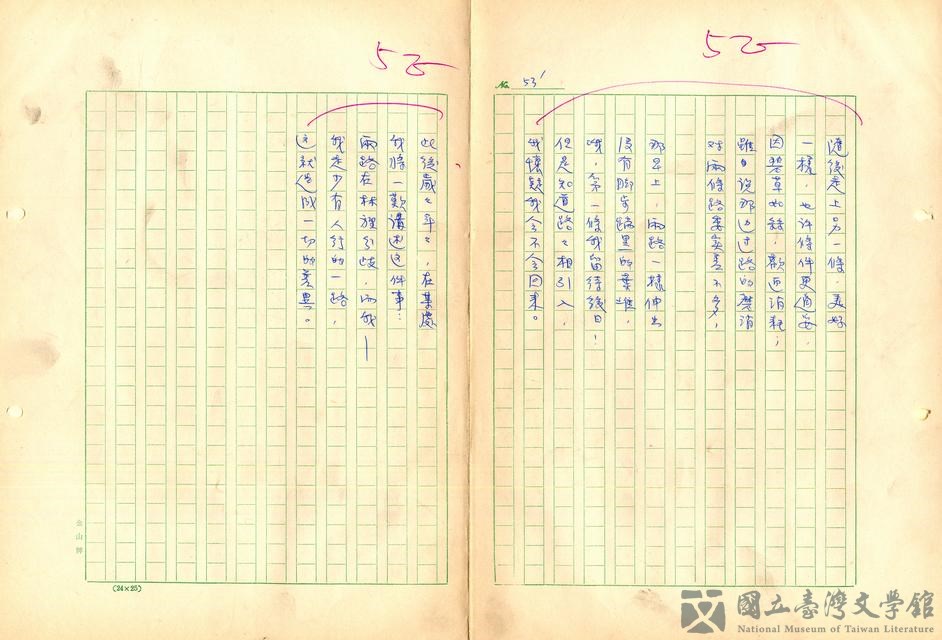 52
No. 53
隨後走上另一條,美好
一樣,也許條件更適妥,
因碧草如絲,歡迎消耗;
雖則說那邊過路的磨消
對兩條路委實差不多,
那早上,兩路一樣伸出
沒有腳步踏黑的葉堆,
哦,第一條我留待後日!
但是知道路々相引入,
我懷疑我會不會回來。
52
此後歲々年々,在某處
我將一歎講述這件事:
兩路在林裡分歧,而我—
我走少有人行的一路,
這就造成一切的差異。
金山牌
(24×25)
國立臺灣文學館
National Museum of Taiwan Literature